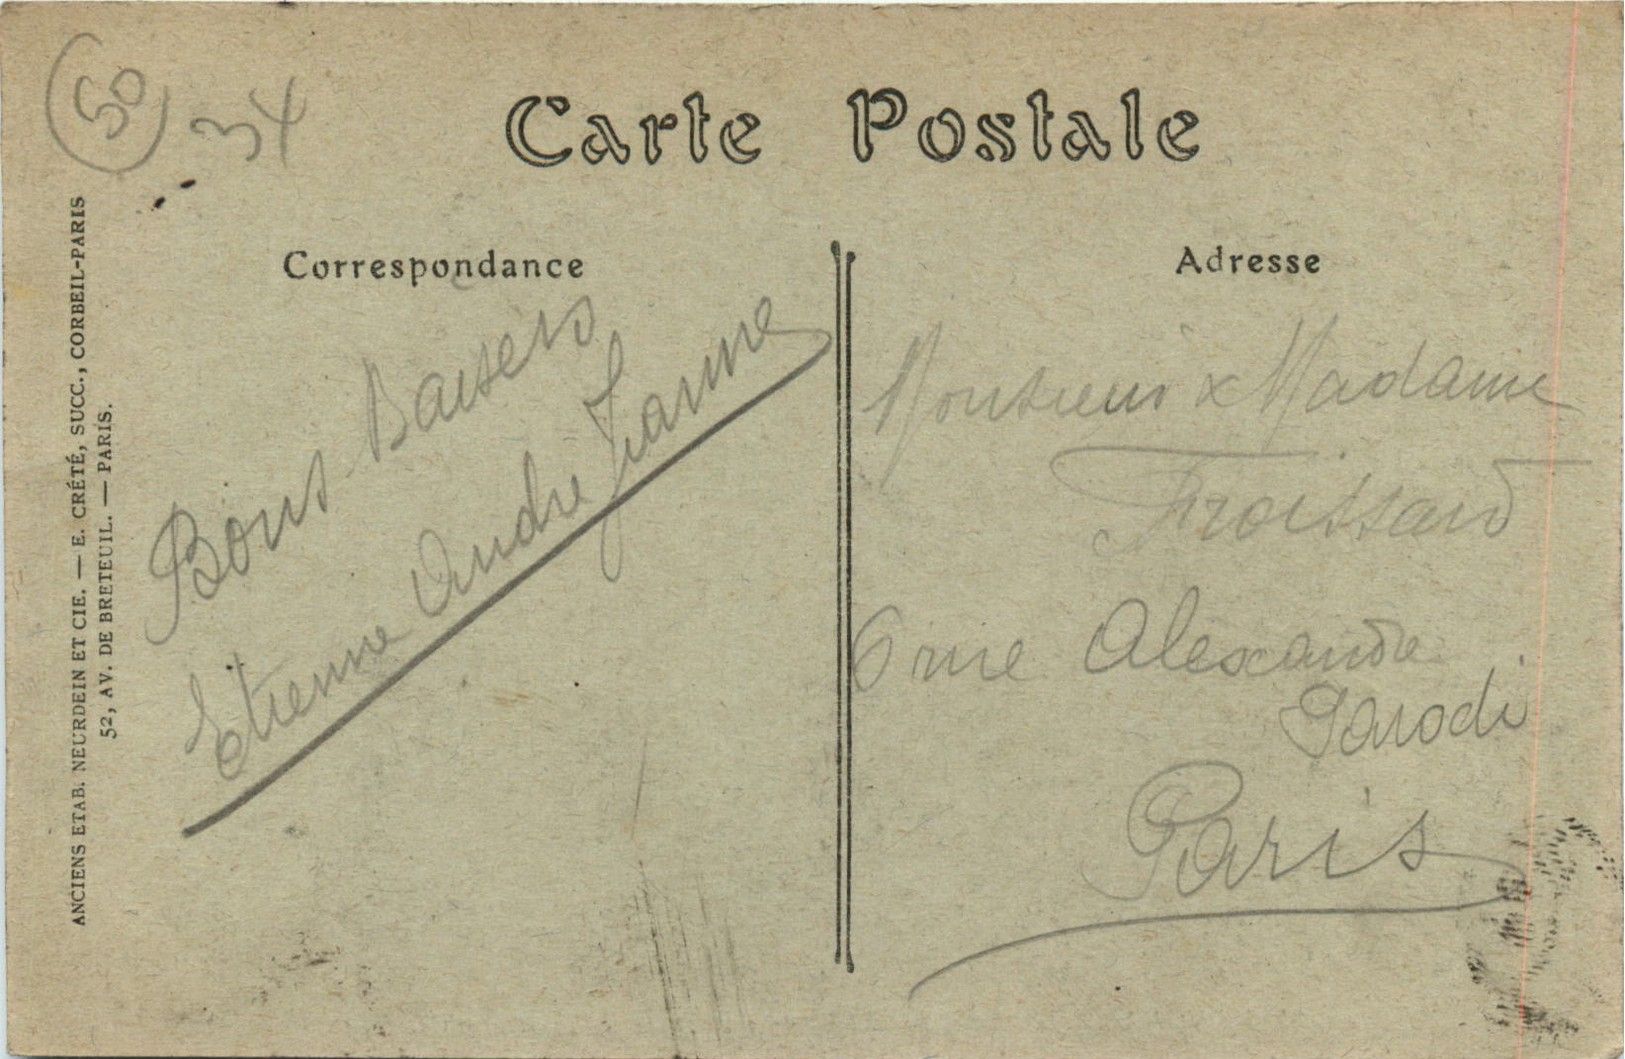 50 34
Carte Postale
ANCIENS ETAB. NEURDEIN ET CIE. — E. CRÉTÉ, SUCC., CORBEIL-PARIS
52, AV. DE BRETEUIL. — PARIS.
Correspondance
Bons Baisers
Etienne Andre Janne
Adresse
Monsieur & Madame
Froissard
6 rue Alexandre
Parodi
Paris